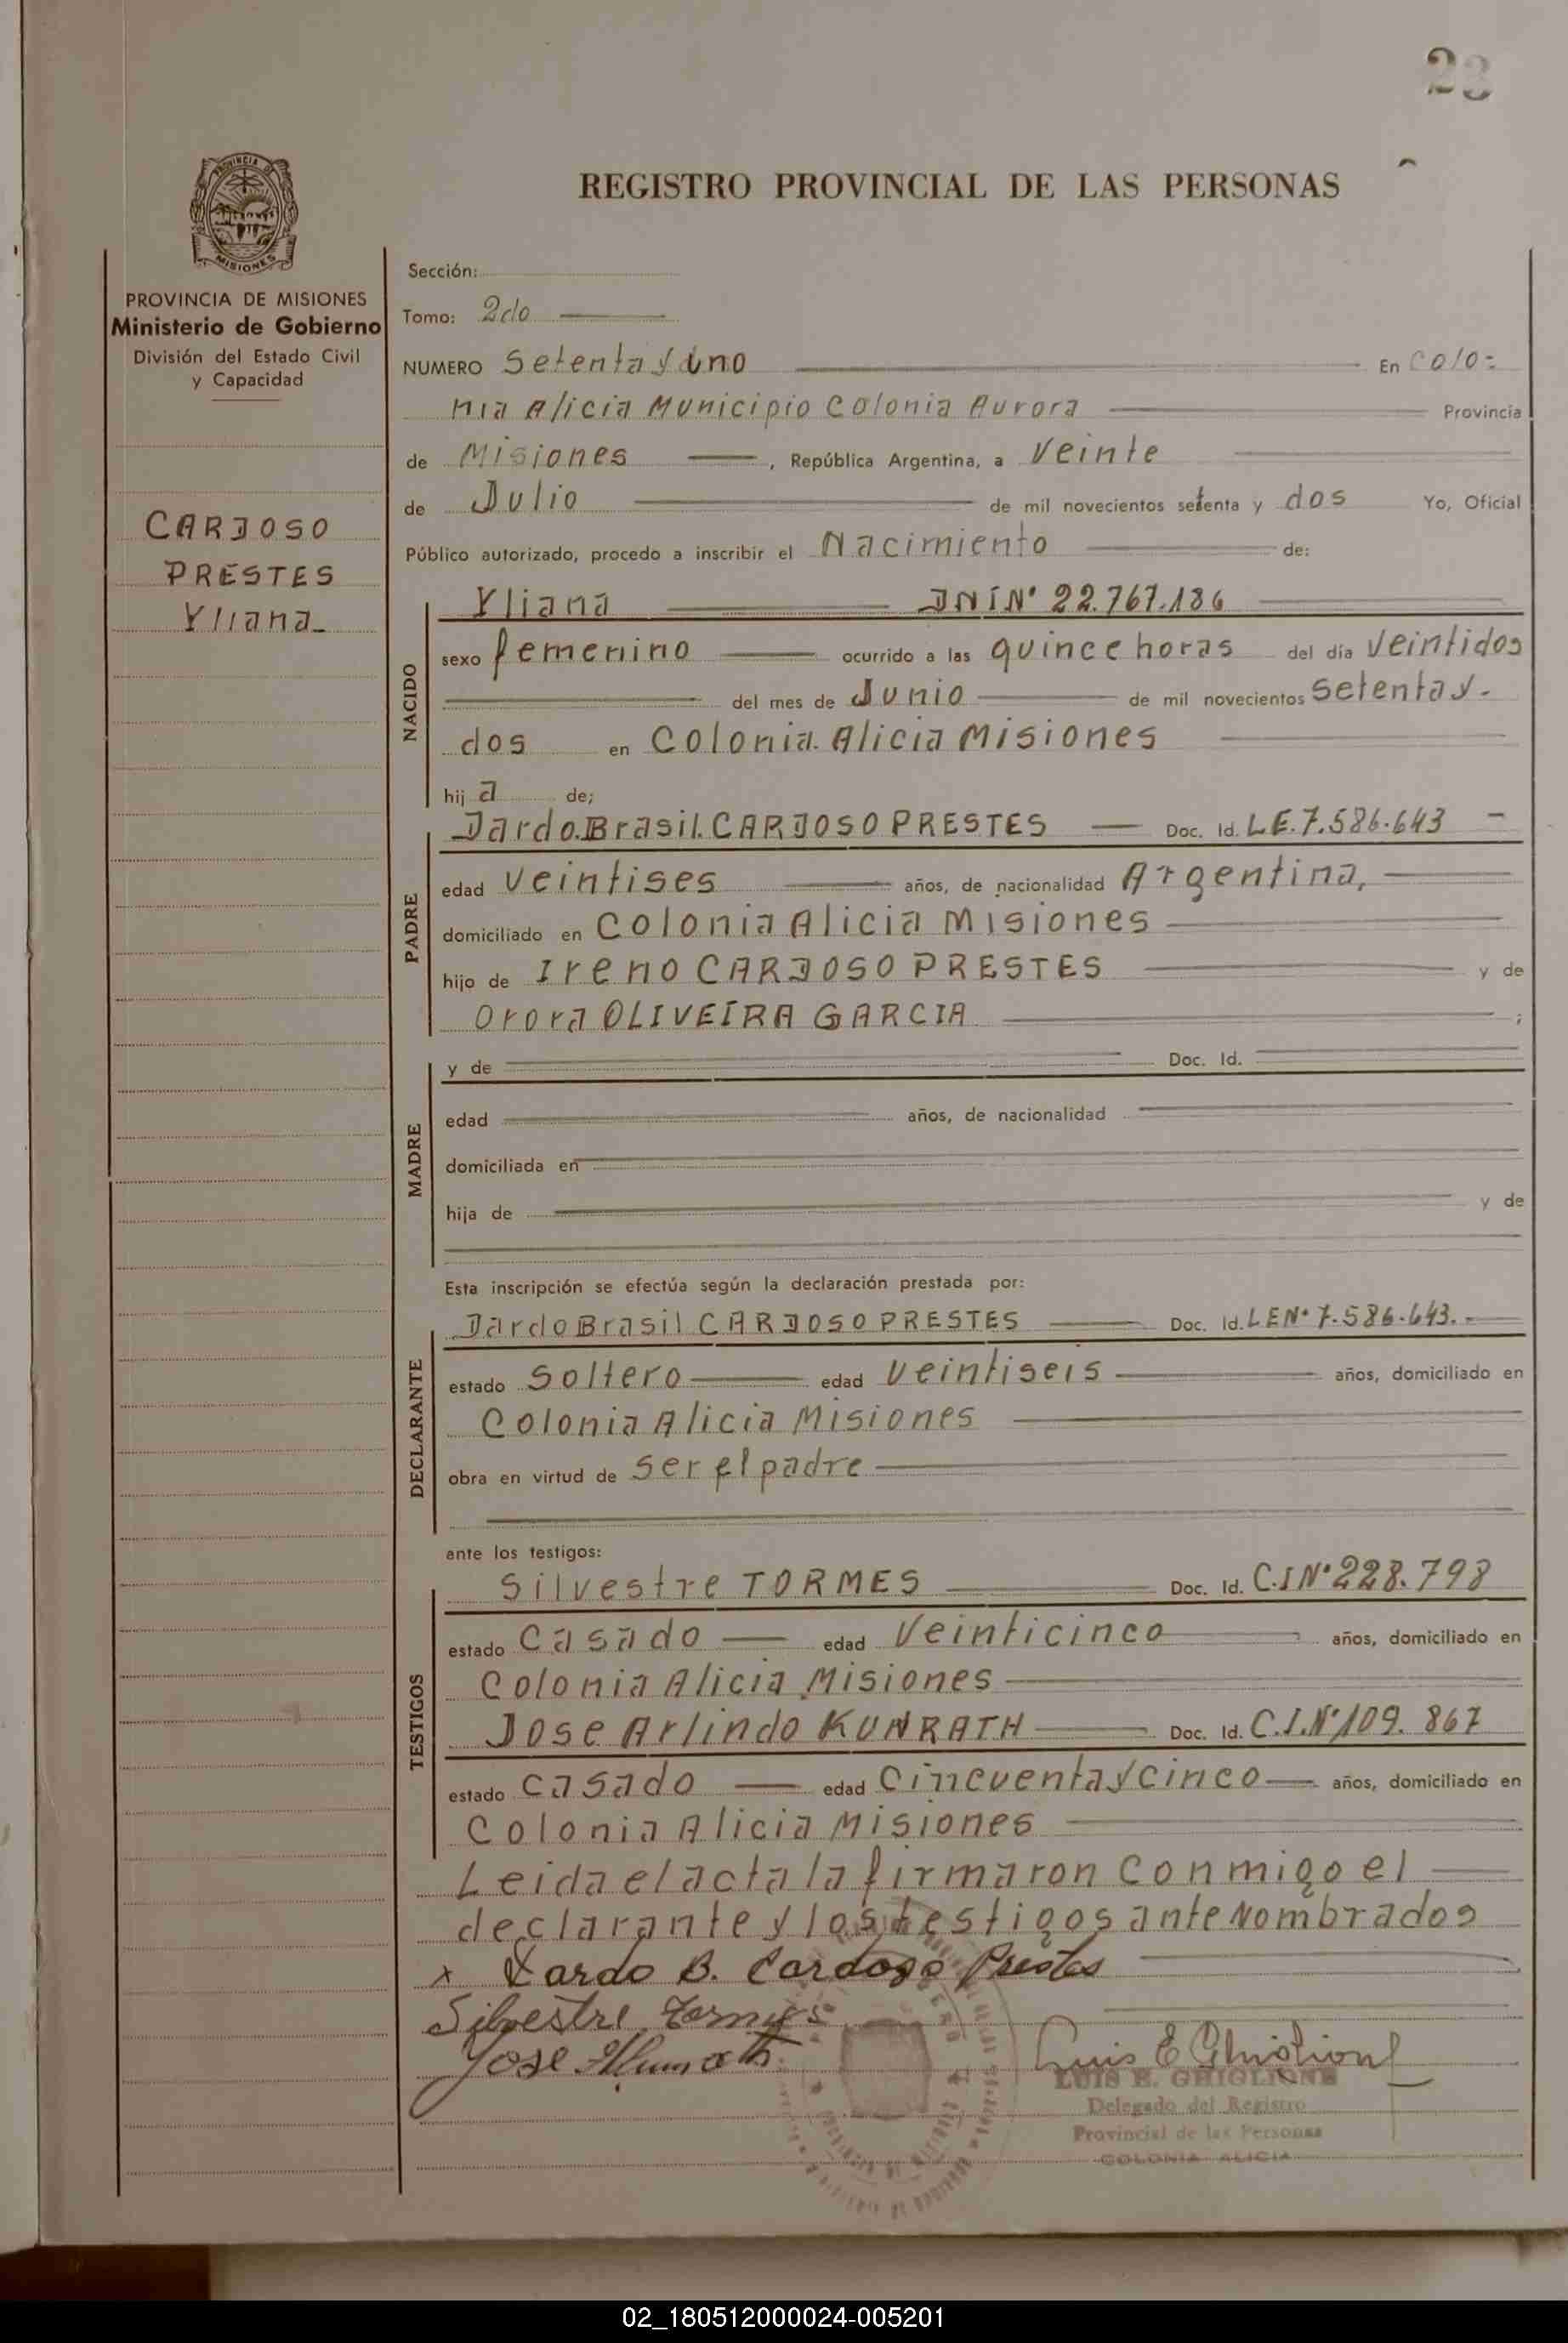 23
REGISTRO PROVINCIAL DE LAS PERSONAS
PROVINCIA DE
MISIONES
PROVINCIA DE MISIONES
Ministerio de Gobierno
División del Estado Civil
y Capacidad
CARDOSO
PRESTES
Yliana
Sección:
Tomo: 2do
NUMERO Setenta y uno En Colo=
nia Alicia Municipio Colonia Aurora Provincia
de Misiones, República Argentina, a Veinte
de Julio de mil novecientos setenta y dos Yo, Oficial
Público autorizado, procedo a inscribir el Nacimiento de:
NACIDO
Yliana DNI Nº 22.767.186
sexo femenino ocurrido a las quince horas del día Veintidos
del mes de Junio de mil novecientos Setenta y-
dos en Colonia Alicia Misiones
hij a de;
PADRE
Dardo Brasil CARDOSO PRESTES Doc. Id. L.E. 7.586.643
edad Veintises años, de nacionalidad Argentina,
domiciliado en Colonia Alicia Misiones
hijo de Ireno CARDOSO PRESTES y de
Orora OLIVEIRA GARCIA;
MADRE
y de Doc. Id.
edad años, de nacionalidad
domiciliada en
hija de y de
Esta inscripción se efectúa según la declaración prestada por:
DECLARANTE
Dardo Brasil CARDOSO PRESTES Doc. Id. L E Nº 7.586.643.-
estado Soltero edad Veintiseis años, domiciliado en
Colonia Alicia Misiones
obra en virtud de Ser el padre
ante los testigos:
TESTIGOS
Silvestre TORMES Doc. Id. C.I Nº 228.798
estado Casado edad Veinticinco años, domiciliado en
Colonia Alicia Misiones
Jose Arlindo KUNRATH Doc. Id. C.I.Nº 109.867
estado Casado edad Cincuenta y cinco años, domiciliado en
Colonia Alicia Misiones
Leida el acta la firmaron Conmigo el
declarante y los testigos ante Nombrados
x Dardo B. Cardoso Prestes
Silvestre Tormes
Jose
Luis E Ghiglione
LUIS E. GHIGLIONE
Delegado del Registro
Provincial de las Personas
COLONIA ALICIA
02_180512000024-005201